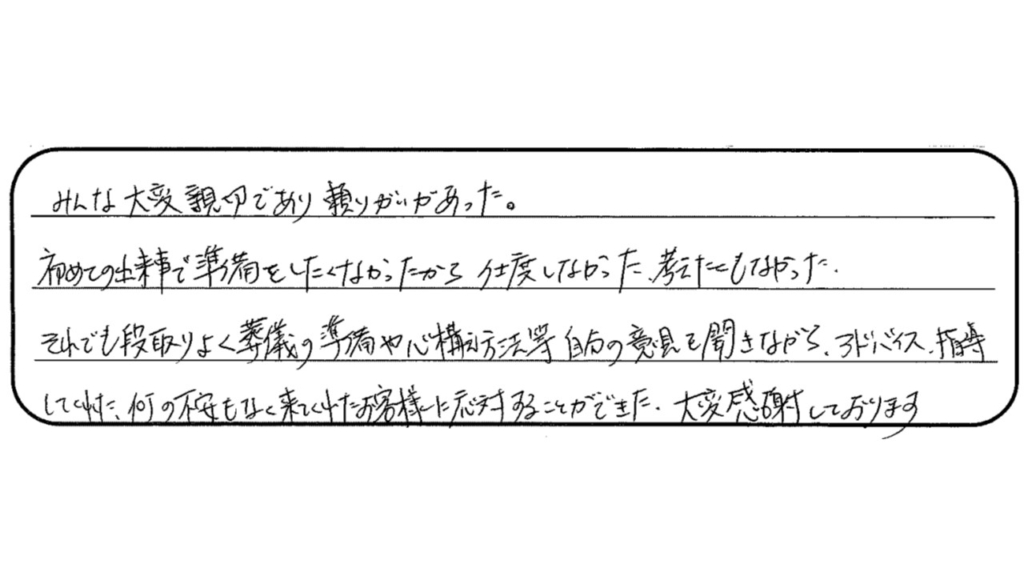 みんな大変親切であり頼りがいがあった。
初めての出来事で準備をしたくなかったから仕度しなかった、考えたこともなかった.
それでも段取りよく葬儀の準備や心構え方法等自分の意見を聞きながら、アドバイス、指導
してくれた、何の不安もなく来てくれたお客様に応対することができた. 大変感謝しております